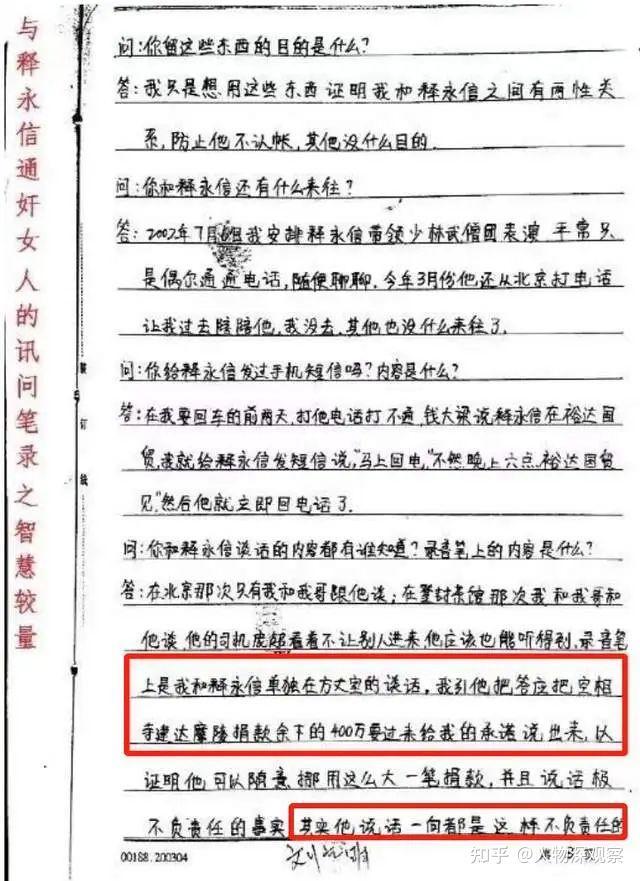 与释永信通奸女人的讯问笔录之智慧较量
问:你留这些东西的目的是什么?
答:我只是想用这些东西证明我和释永信之间有两性关
系,防止他不认帐,其他没什么目的.
问:你和释永信还有什么来往?
答:2002年7月我安排释永信带领少林武僧团表演 平常只
是偶尔通通电话,随便聊聊.今年3月份他还从北京打电话
让我过去陪陪他,我没去,其他也没什么来往了.
问:你给释永信发过手机短信吗?内容是什么?
答:在我要回车的前两天,打他电话打不通,钱大梁说释永信在裕达国
贸,我就给释永信发短信说,"马上回电,"不然晚上六点裕达国贸
见,"然后他就立即回电话了.
问:你和释永信谈话的内容都有谁知道?录音笔上的内容是什么?
答:在北京那次只有我和我哥跟他谈;在登封 那次我和我哥和
他谈,他的司机 看着不让别人进来,他应该也能听得到,录音笔
上是我和释永信单独在方丈室的谈话,我引他把答应把空相
寺建达摩陵捐款余下的400万要过来给我的承诺说出来,以
证明他可以随意挪用这么大一笔捐款,并且说话极
不负责任的事实.其实他说话一向都是这样不负责任的
装
订
线
00188.200304
第 3 页
知乎 @人物深观察